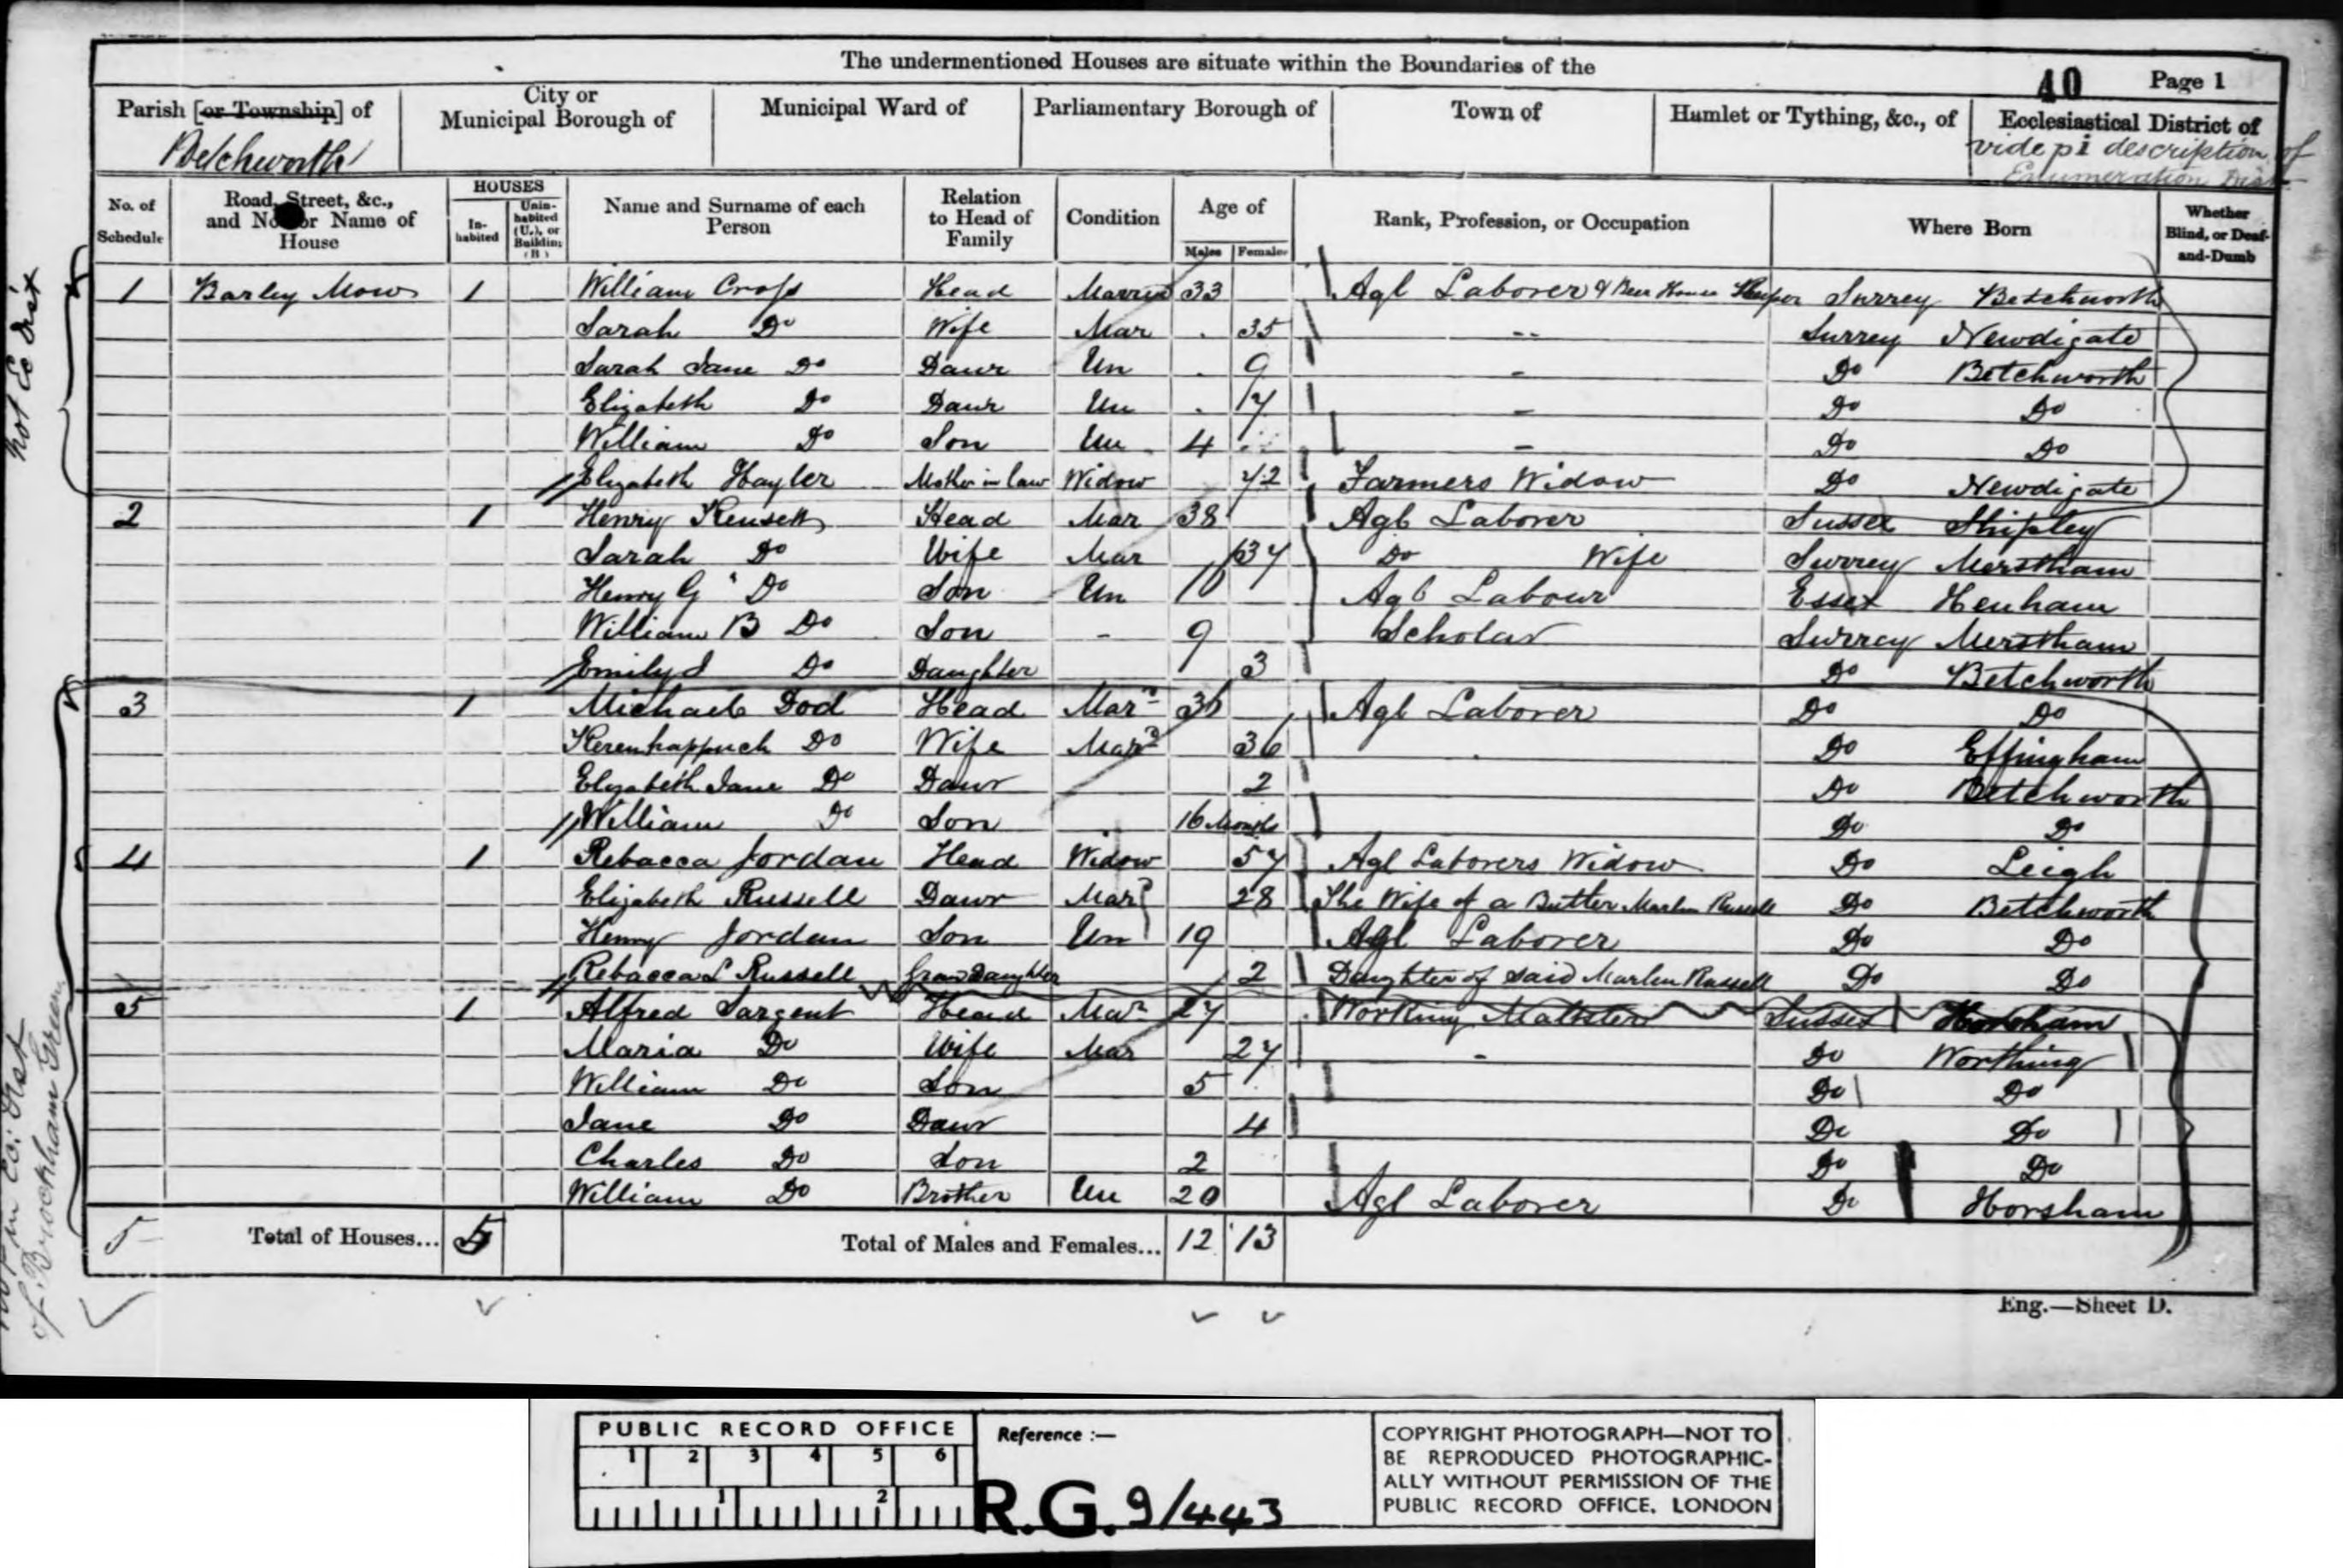 The undermentioned Houses are situate within the Boundaries of the
40 Page 1
Parish [or Township] of City or Municipal Borough of Municipal Ward of Parliamentary Borough of Town of Hamlet or Tything, &c., of Ecclesiastical District of
Betchworth vide p1 description of Enumeration Dist
No. of Schedule Road, Street, &c., and No. or Name of House HOUSES Inhabited Uninhabited (U.), or Building (B) Name and Surname of each Person Relation to Head of Family Condition Age of Males Females Rank, Profession, or Occupation Where Born Whether Blind, or Deaf-and-Dumb
not Ec Dist
1 Barley Mow 1 William Cross Head Married 33 Agl Laborer & Beer House Keeper Surrey Betchworth
Sarah Do Wife Mar 35 Surrey Newdigate
Sarah Jane Do Dawr Un 9 Do Betchworth
Elizabeth Do Dawr Un 17 Do Do
William Do Son Un 4 Do Do
Elizabeth Hayler Mother in law Widow 72 Farmers Widow Do Newdigate
2 1 Henry Kensett Head Mar 38 Agl Laborer Sussex Shipley
Sarah Do Wife Mar 37 Do Wife Surrey Merstham
Henry G Do Son Un 10 Agl Labour Essex Henham
William B Do Son 9 Scholar Surrey Merstham
Emily J Do Daughter 3 Do Betchworth
3 1 Michael Dod Head Mar 36 Agl Laborer Do Do
Kerenhappuch Do Wife Mar 36 Do Effingham
Elizabeth Jane Do Dawr 2 Do Betchworth
William Do Son 16 Months Do Do
4 1 Rebacca Jordan Head Widow 57 Agl Laborers Widow Do Leigh
Elizabeth Russell Dawr Mar 28 The Wife of a Butler Marlen Russell Do Betchworth
Henry Jordan Son Un 19 Agl Laborer Do Do
Rebacca L Russell Grandaughter 2 Daughter of said Marlen Russell Do Do
5 1 Alfred Sargent Head Mar 27 Working Maltster Sussex Horsham
Maria Do Wife Mar 27 Do Worthing
William Do Son 5 Do Do
Jane Do Dawr 4 Do Do
Charles Do Son 2 Do Do
William Do Brother Un 20 Agl Laborer Do Horsham
5 Total of Houses... 5 Total of Males and Females... 12 13
in Ec: Dist
of Brockham Green
Eng.—Sheet D.
PUBLIC RECORD OFFICE
1 2 3 4 5 6
1 2
Reference :—
R.G. 9/443
COPYRIGHT PHOTOGRAPH—NOT TO
BE REPRODUCED PHOTOGRAPHIC-
ALLY WITHOUT PERMISSION OF THE
PUBLIC RECORD OFFICE, LONDON